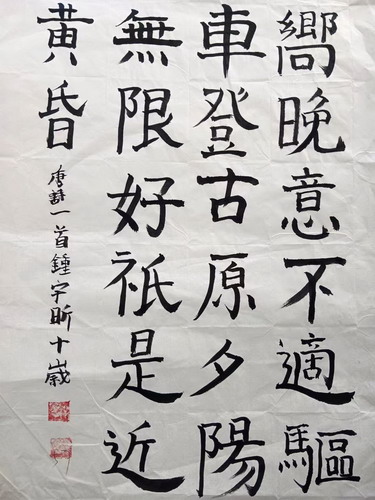 嚮晚意不適驅
車登古原夕陽
無限好祇是近
黃昏
唐詩一首鍾宇昕十歲